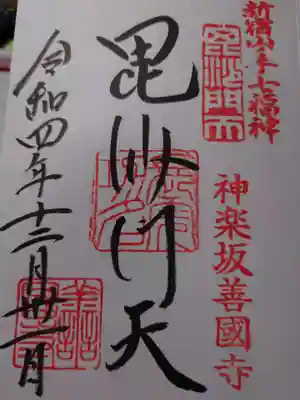 新宿山ノ手七福神
毘沙門天
神楽坂善國寺
毘沙門天
令和四年十二月卅一日